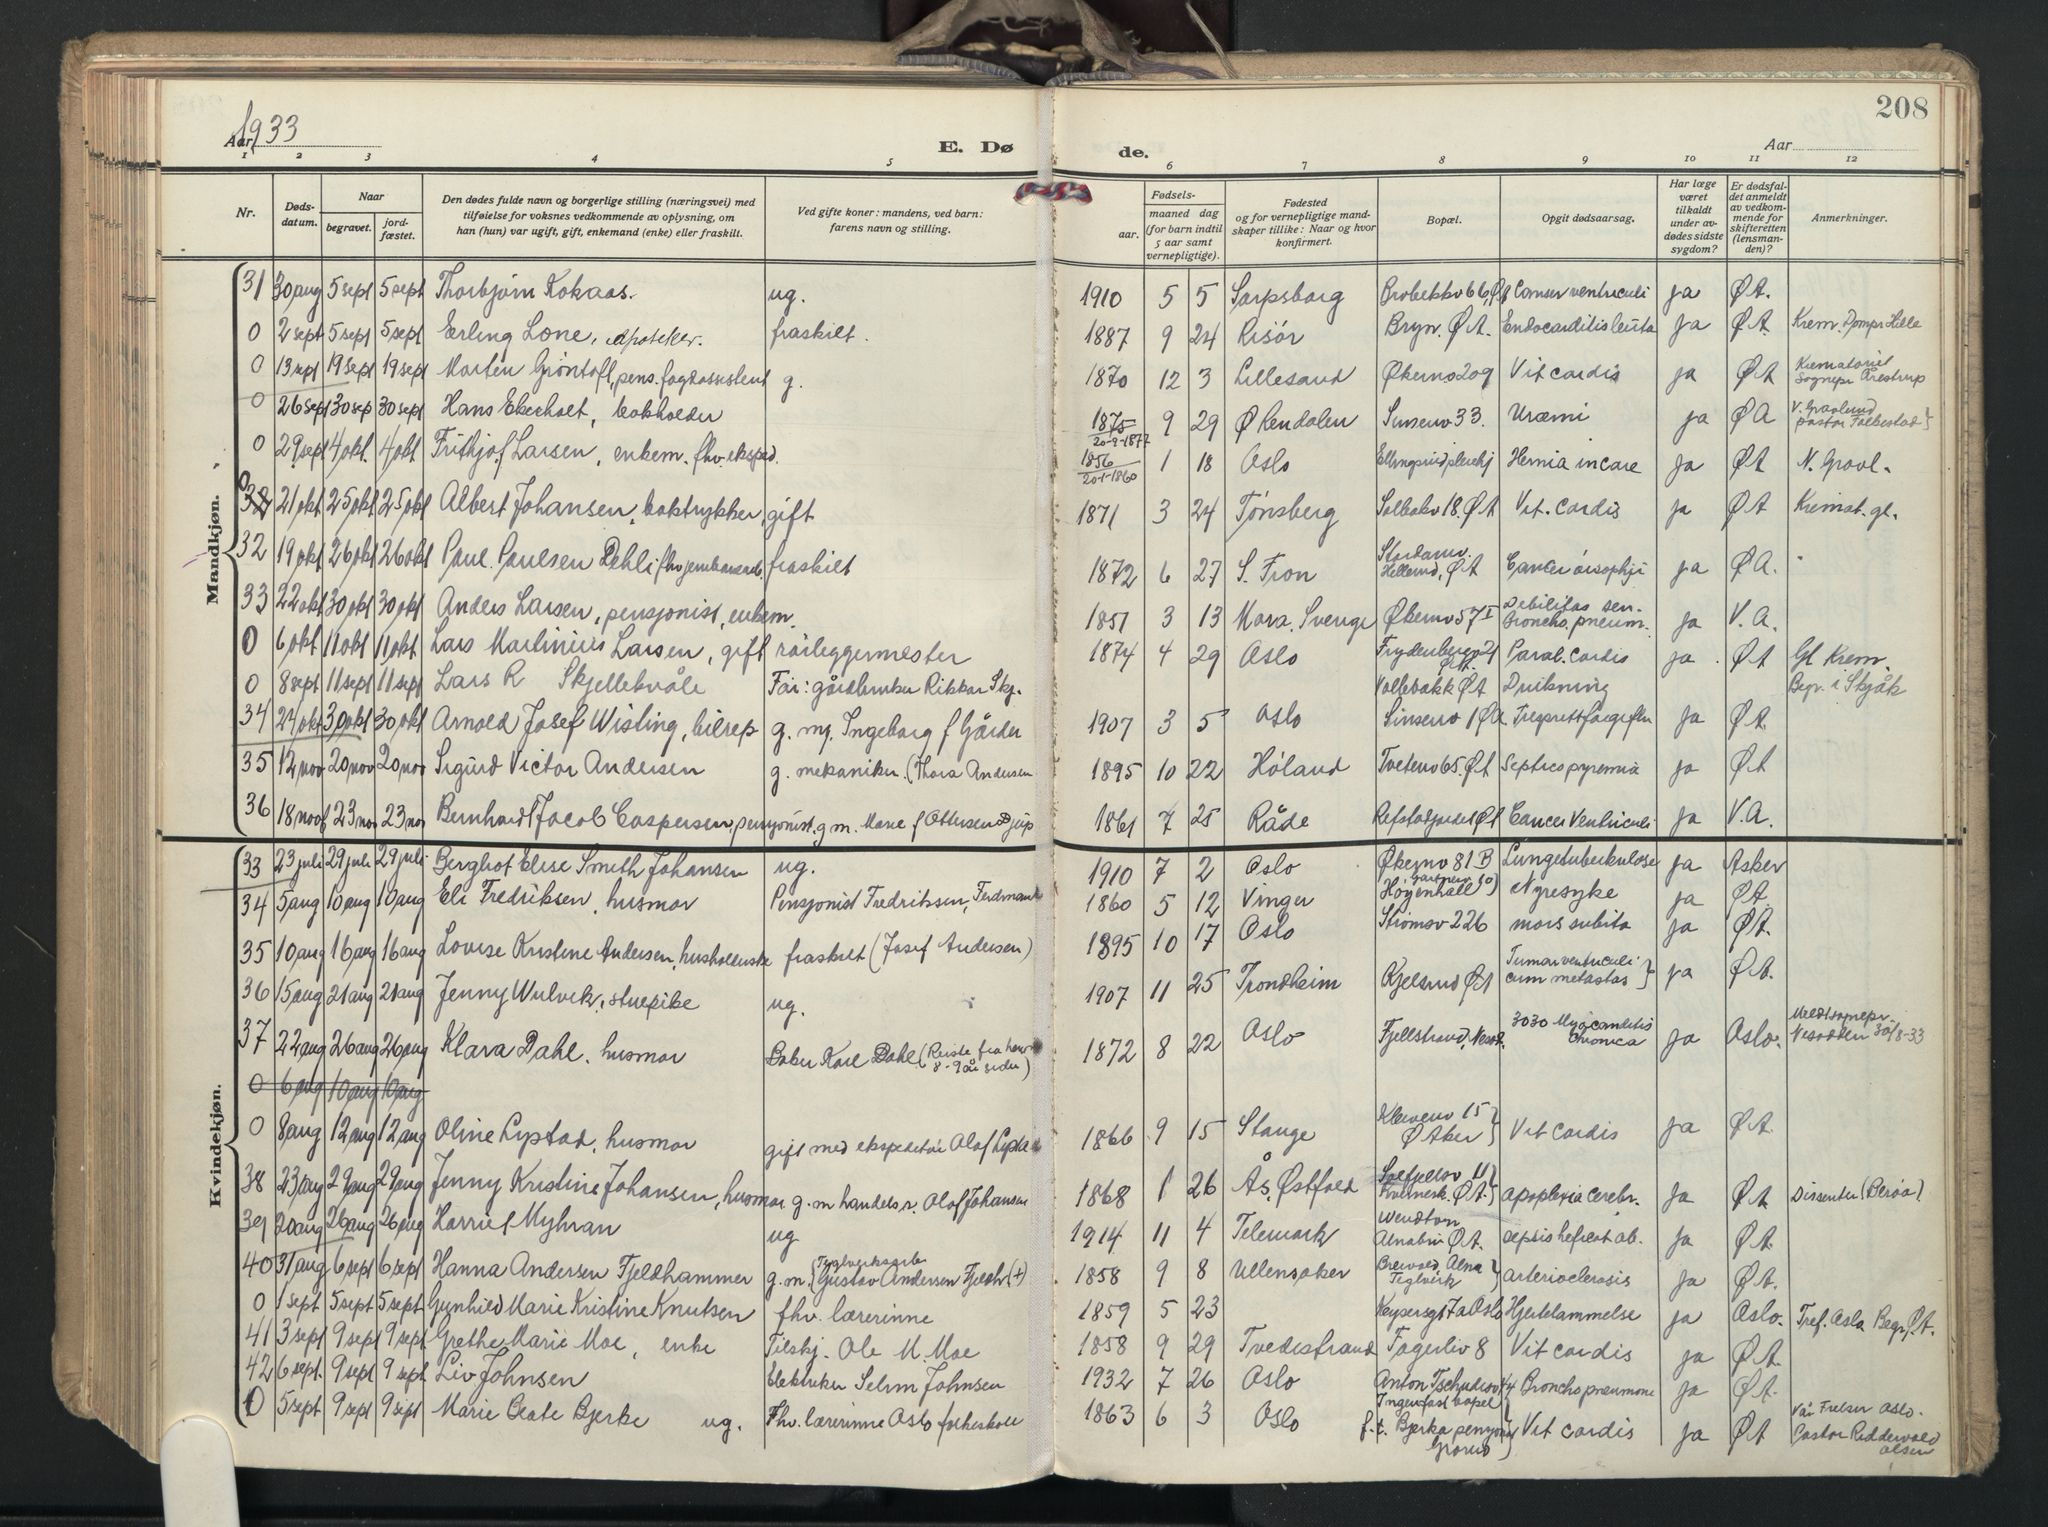 208
Aar 1933
E. Dø
de.
Aar
1 2 3 4 5 6 7 8 9 10 11 12
Nr.
Døds-
datum.
Naar
begravet.
jord-
fæstet.
Den dødes fulde navn og borgerlige stilling (næringsvei) med
tilføielse for voksnes vedkommende av oplysning, om
han (hun) var ugift, gift, enkemand (enke) eller fraskilt.
Ved gifte koner: mandens, ved barn:
farens navn og stilling.
Fødsels-
aar.
maaned dag
(for barn indtil
5 aar samt
vernepligtige).
Fødested
og for vernepligtige mand-
skaper tillike: Naar og hvor
konfirmert.
Bopæl.
Opgit dødsaarsag.
Har læge
været
tilkaldt
under av-
dødes sidste
sygdom?
Er dødsfal-
det anmeldt
av vedkom-
mende for
skifteretten
(lensman-
den)?
Anmerkninger.
Mandkjøn.
31 30 aug 5 sept 5 sept Thorbjørn Kokaas. ug. 1910 5 5 Sarpsborg Brobekkv 66, Øst Cancer ventriculi ja Ø A.
0 2 sept 5 sept 5 sept Erling Lone, Apoteker. fraskilt. 1887 9 24 Risør Bryn. Ø A. Endocarditis lenta ja Ø A. Krem. Dompr Hille
0 13 sept 19 sept 19 sept Morten Grøntoft, pens. g. 1870 12 3 Lillesand Økernv 209 Vit cardis ja Ø A Krematoriet
Sognepr Arestrup
0 26 sept 30 sep 30 sept Hans Ekerholt, bokholder 1875 9 29 Ø Rendalen Sinsenv 33. Uræmi ja Ø A V. Gravlund
20-9-1877 pastor Falbestad
0 29 sept 4 okt. 4 okt Frithjof Larsen, enkem. fhv. eksped. 1856 1 18 Oslo Ellingsrud pleiehj Hernia incare ja Ø A N. Gravl.
20-1-1860
0 21 okt 25 okt 25 okt Albert Johansen, boktrykker, gift 1871 3 24 Tønsberg Solbakv 18. Ø A Vit. cordis ja Ø A Kremat. gl.
32 19 okt 26 okt 26 okt Paul Paulsen Dehli fraskilt 1872 6 27 S. Fron Hellerud, Ø A Cancer ja Ø A.
33 22 okt 30 okt 30 okt Anders Larsen, pensjonist, enkem. 1851 3 13 Mora. Sverige Økernv 57 I Debilitas sen.
Broncho. pneum. ja V. A.
0 6 okt 11 okt 11 okt Lars Martinius Larsen, gift rørleggermester 1874 4 29 Oslo Frydenbergv 21
Ø A. Paral. cordis ja Ø A Gl Krem.
0 8 sept 11 sept 11 sept Lars R Skjellekvåle Far: gårdbruker Rikkar Skj. Vollebakk Ø A Drukning Begr. i Skjåk
34 24 okt 30 okt 30 okt Arnold Josef Wisting, bilrep g. m. Ingeborg f Gårder 1907 3 5 Oslo Sinsenv 1 Ø A ja Ø A.
35 12 nov 20 nov 20 nov Sigurd Victor Andersen g. mekaniker (Thora Andersen 1895 10 22 Høland Tvetenv 65. Ø A Septicopyremia ja Ø A
36 18 nov 23 nov 23 nov Bernhardt Jacob Caspersen, pensjonist, g. m. Marie f Ottersen 1861 7 25 Råde Refstadjordet Ø A Cancer Ventriculi ja V. A.
Kvindekjøn.
33 23 juli 29 juli 29 juli Berghot Elise Smith Johansen ug. 1910 7 2 Oslo Økernv 81 B Lungetuberkulose ja Asker
34 5 aug 10 aug 10 aug Eli Fredriksen, husmor Pensjonist Fredriksen, Ferdinand 1860 5 12 Vinger Høyenhall Nyresyke ja Ø A.
35 10 aug 16 aug 16 aug Lovise Kristine Andersen, husholderske fraskilt (Josef Andersen) 1895 10 17 Oslo Strømsv 226 mors subita ja Ø A.
36 15 aug 21 aug 21 aug Jenny Wulvik, stuepike ug. 1907 11 25 Trondheim Kjelsrud Ø A Tumor ventriculi
cum metastas ja Ø A.
37 22 aug 26 aug 26 aug Klara Dahl, husmor Baker Karl Dahl (Reiste fra ham
8-9 år siden) 1872 8 22 Oslo Fjellstrand, Nesod. 3030 Myocarditis
Chronica ja Oslo. Meldt sognepr.
Nesodden 30/8-33
0 6 aug 10 aug 10 aug
0 8 aug 12 aug 12 aug Oline Lystad, husmor gift med ekspeditør Olaf Lysta 1866 9 15 Stange Kløverv 15
Ø Aker Vit cordis ja Ø A.
38 23 aug 29 aug 29 aug Jenny Kristine Johansen, husmor g. m handelsr. Olaf Johansen 1868 1 26 Ås, Østfold Ø A. apoplexia cerebr. ja Ø A Dissenter (Berøa).
39 20 aug 26 aug 26 aug Harriet Myhran ug 1914 11 4 Telemark Alnabru Ø A. ja Ø A.
40 31 aug 6 sept 6 sept Hanna Andersen Fjeldhammer g. m. Teglverksarb
Gustav Andersen Fjeldh (+) 1858 9 8 Ullensaker Breivold, Alna
Teglverk arteriosclerosis ja Ø A.
0 1 sept 5 sept 5 sept Gunhild Marie Kristine Knutsen fhv. lærerinne 1859 5 23 Keysersgt 7a Oslo Hjertelammelse ja Oslo. Tref. Oslo Begr. Ø A.
41 3 sept 9 sept 9 sept Grethe Marie Moe, enke Tilskj. Ole M. Moe 1858 9 29 Tvedestrand Fagerliv 8 Vit cordis ja Ø A.
42 6 sept. 9 sept 9 sept Liv Johnsen Elektriker Selim Johnsen 1932 7 26 Oslo Anton Tschudisv 44 Bronchopneumoni ja Ø A.
0 5 sept 9 sept 9 sept Marie Beate Bjerke ug. Fhv. lærerinne Oslo folkeskole 1863 6 3 Oslo Ingen fast bopel
f. t. Bjerka pensjonat
Grorud Vit cordis ja Ø A Vår Frelser Oslo.
Pastor Ridderwold
Olsen